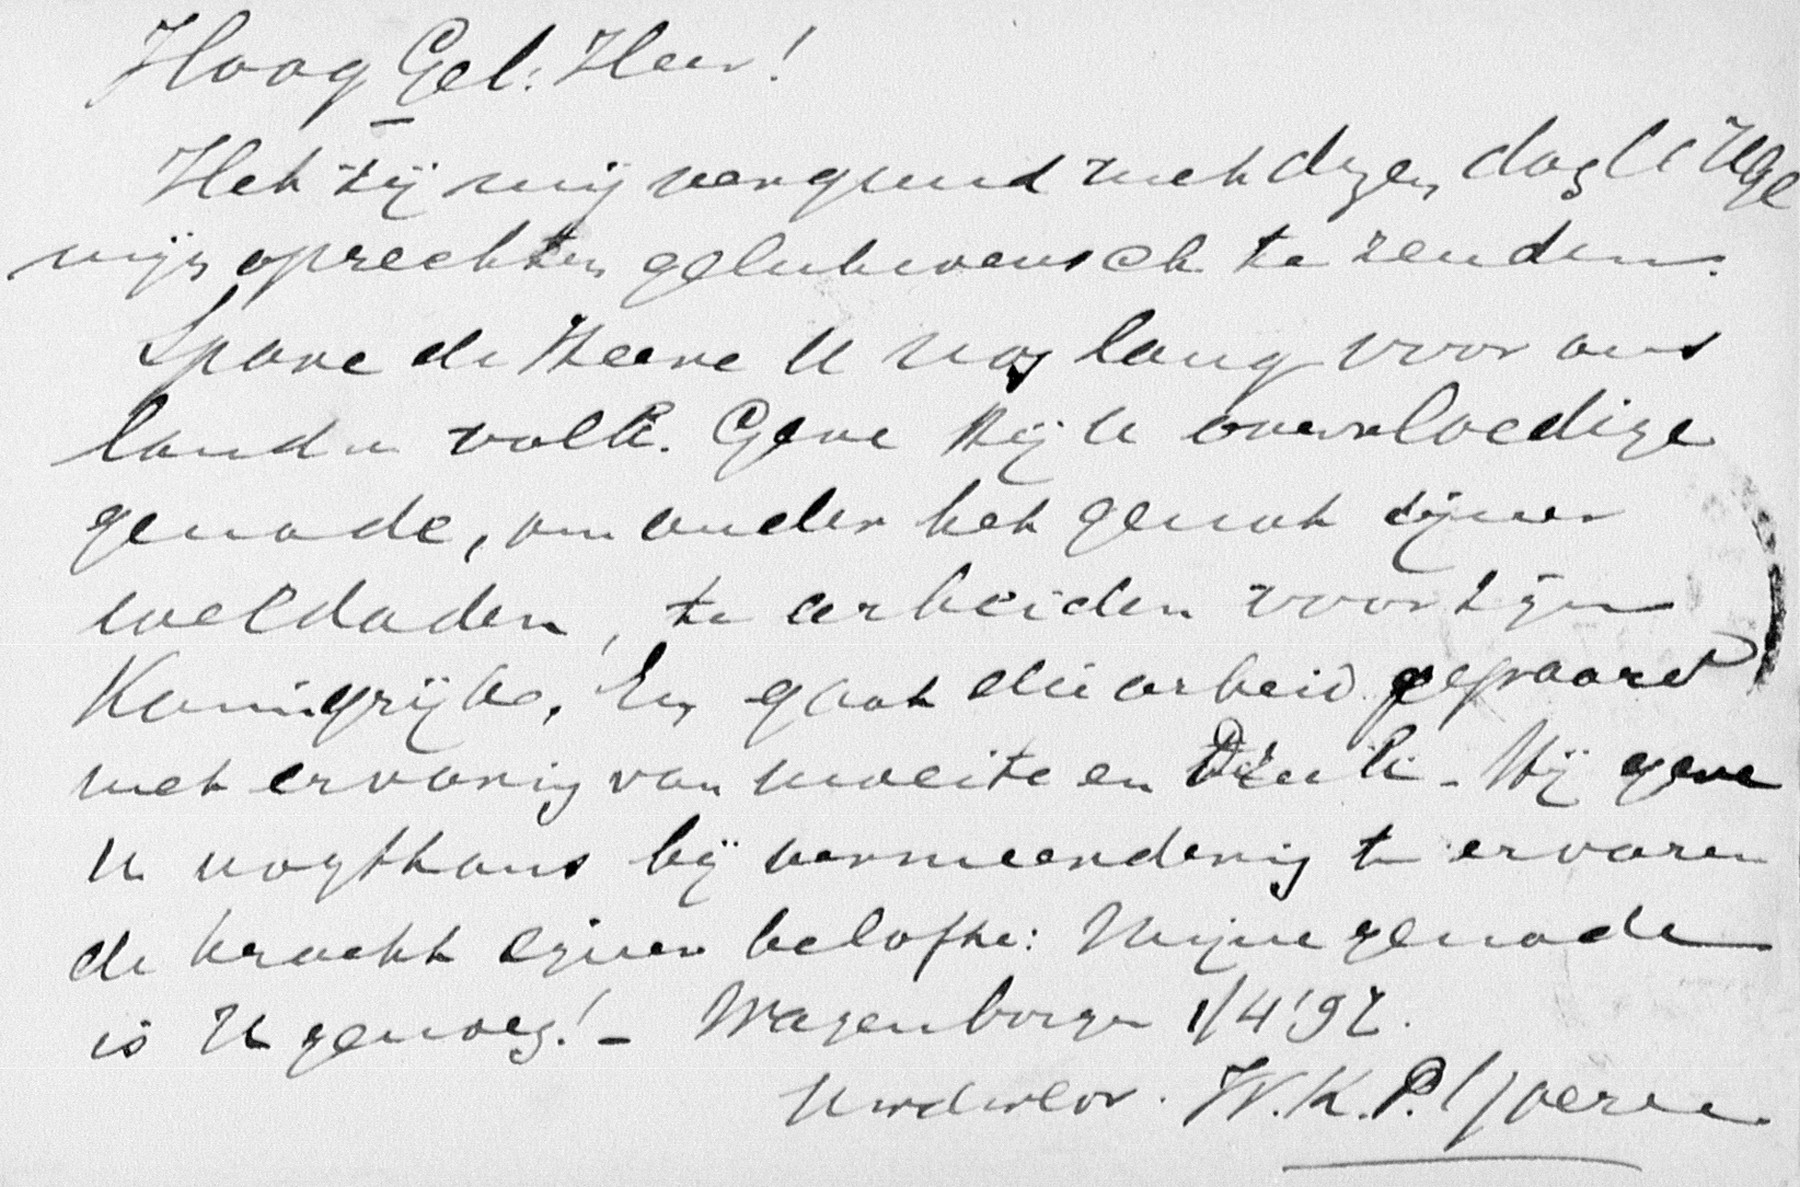 Hoog Gel. Heer!
Het zij mij vergund met dezen dag U HGel
mijn oprechten gelukwensch te zenden.
Spare de Heere U nog lang voor ons
land en volk. Geve Hij U overvloedige
genade, om onder het genot zijner
weldaden, te arbeiden voor zijn
Koningrijke. En gaat die arbeid gepaard
met ervaring van moeite en Druk - Hij geve
U nogthans bij vermeerdering te ervaren
de kracht zijner belofte: Mijne genade
is U genoeg! - Wagenborgen 1/4 '97.
W. K. P.